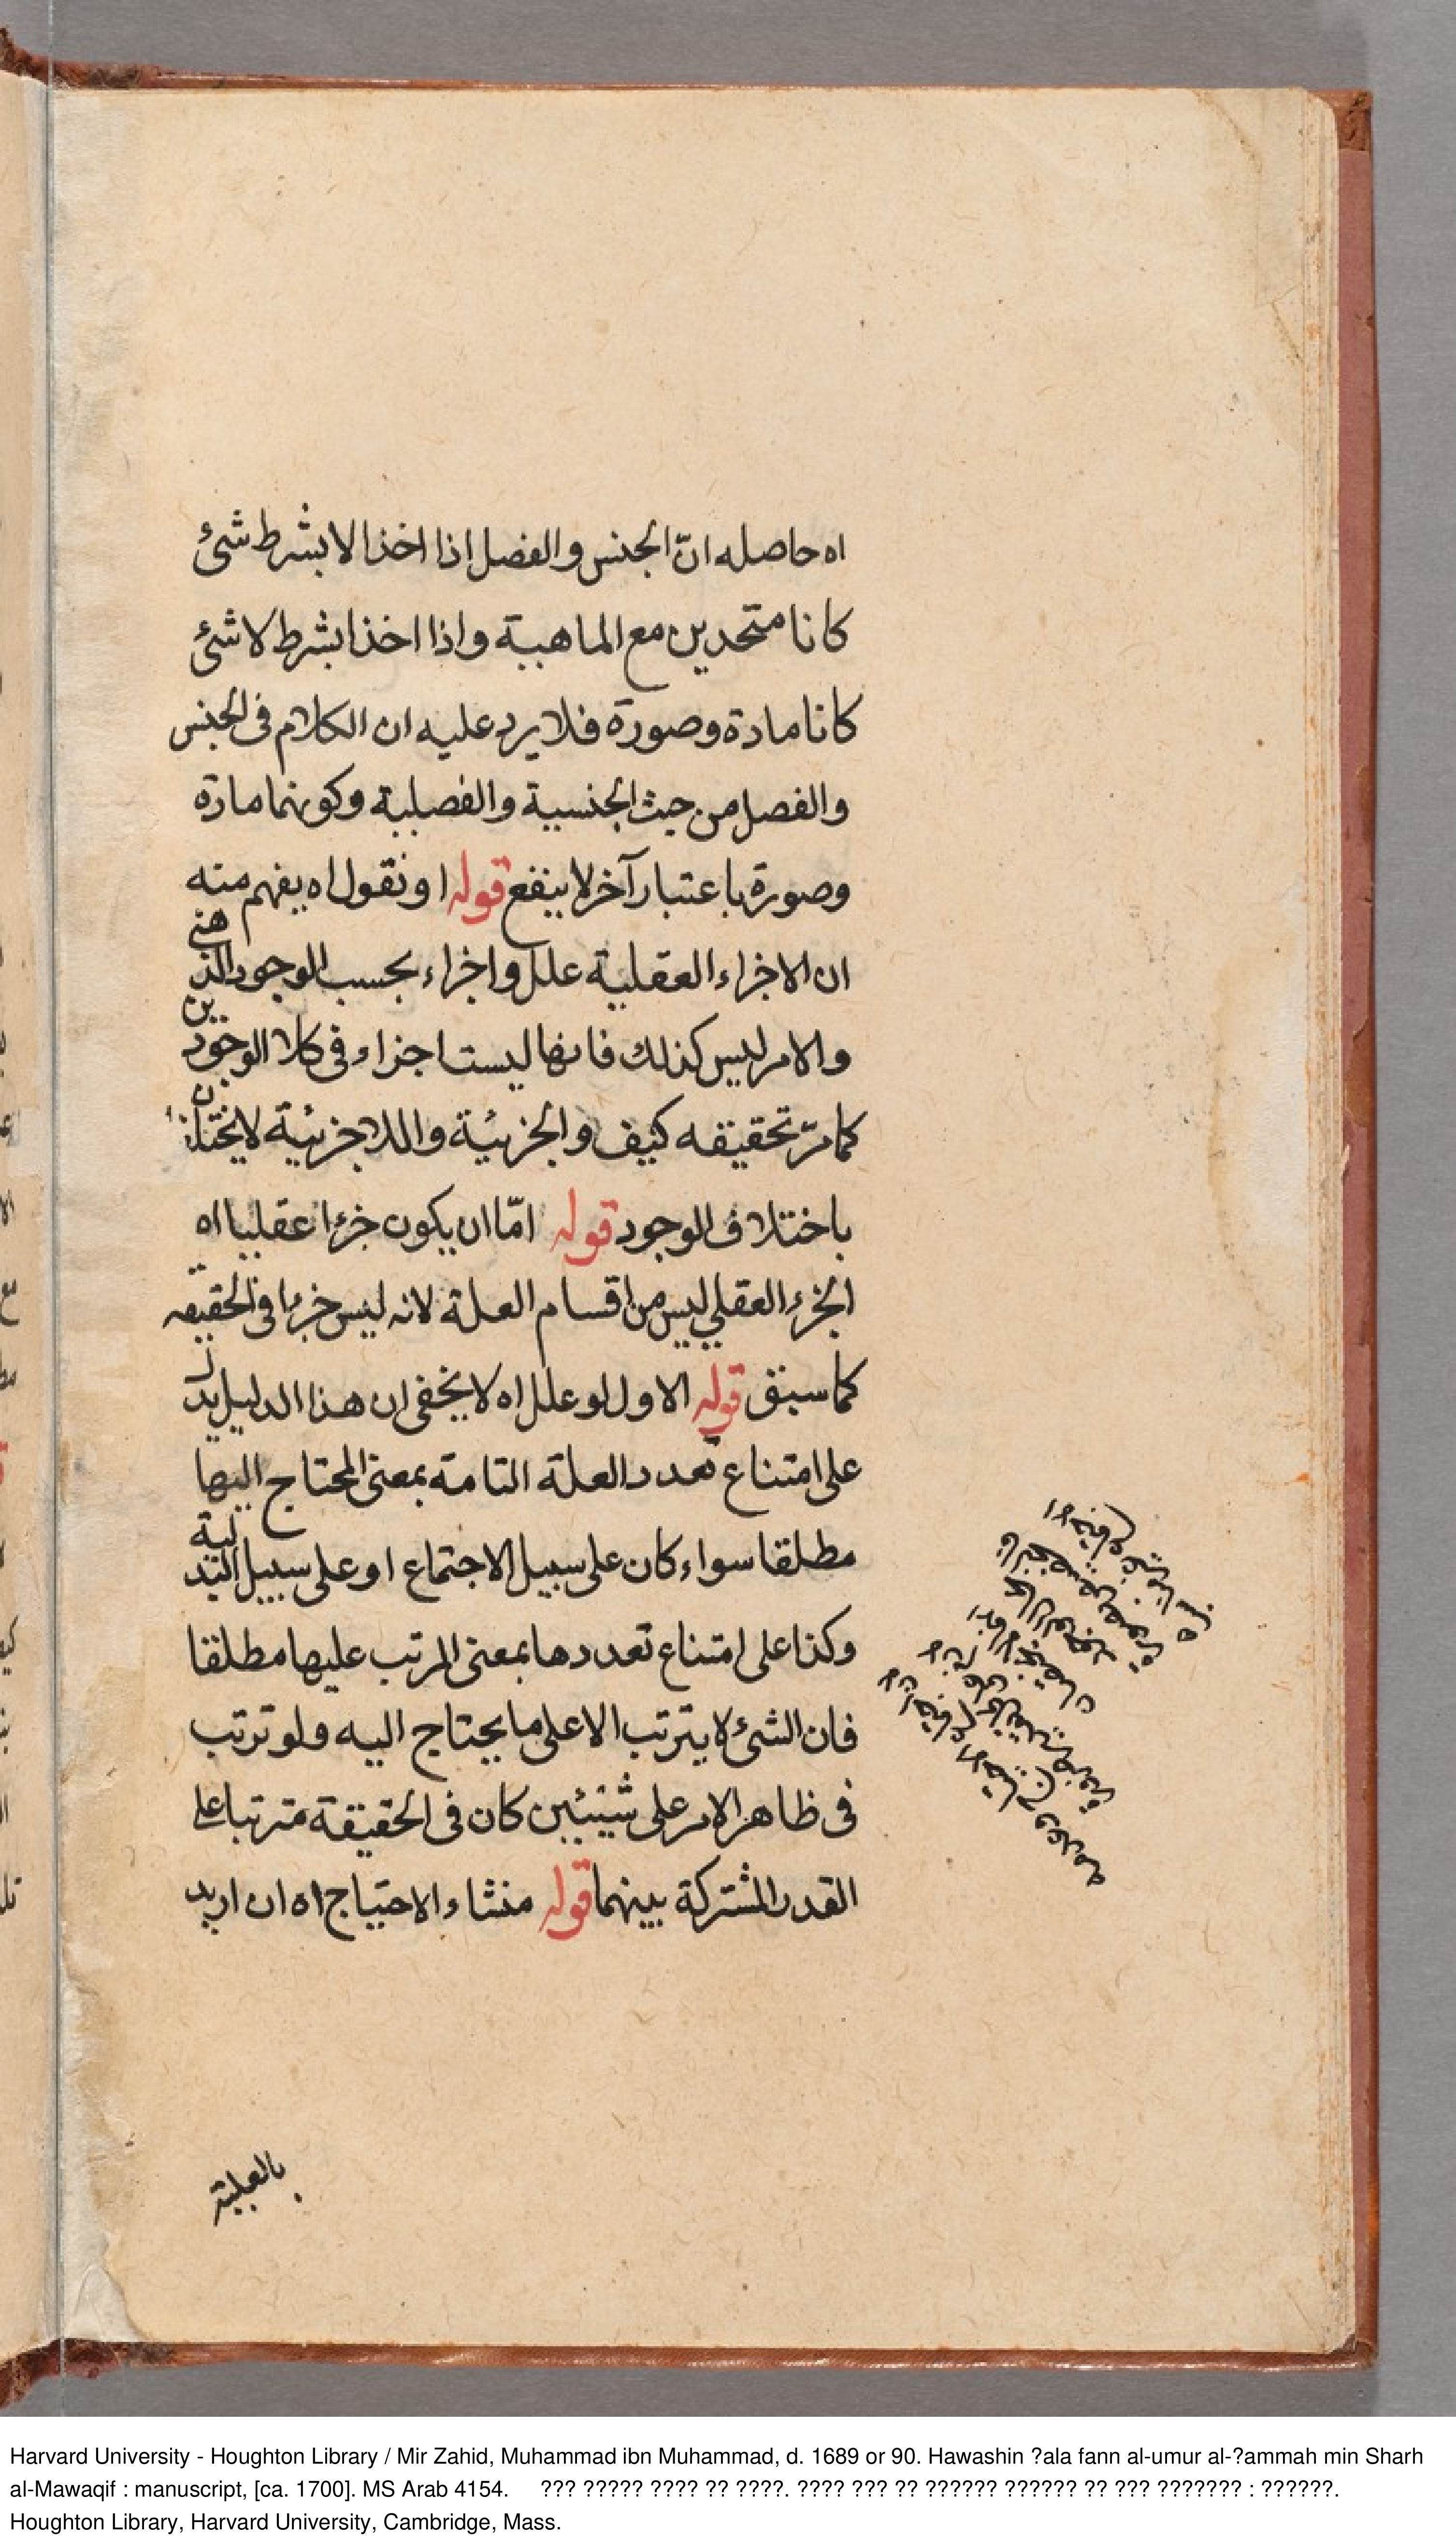 اه حاصله انّ الجنس والفصل اذا اخذا لا بشرط شئ
كانا متحدين مع الماهية واذا اخذا بشرط لا شئ
كانا مادة وصورة فلا يرد عليه ان الكلام فى الجنس
والفصل من حيث الجنسية والفصلية وكونهما مادة
وصورة باعتبار آخر لا ينفع قوله او نقول اه يفهم منه
ان الاجزاء العقلية علل واجزاء بحسب الوجود الذهنى
والامر ليس كذلك فانها ليست اجزاء فى كلا الوجودين
كما مرّ تحقيقه كيف والجزئية واللاجزئية لا يختلفان
باختلاف الوجود قوله امّا ان يكون جزءا عقليا اه
الجزء العقلي ليس من اقسام العلة لانه ليس جزءا فى الحقيقة
كما سبق قوله الاول لو علل اه لا يخفى ان هذا الدليل يدل
على امتناع تعدد العلة التامة بمعنى المحتاج اليها
مطلقا سواء كان على سبيل الاجتماع او على سبيل البدلية
وكذا على امتناع تعددها بمعنى المرتب عليها مطلقا
فان الشئ لا يترتب الا على ما يحتاج اليه ولو ترتب
فى ظاهر الامر على شيئين كان فى الحقيقة مترتبا على
القدر المشتركة بينهما قوله منشاء الاحتياج اه ان اريد
بالعلية
Harvard University - Houghton Library / Mir Zahid, Muhammad ibn Muhammad, d. 1689 or 90. Hawashin ?ala fann al-umur al-?ammah min Sharh
al-Mawaqif : manuscript, [ca. 1700]. MS Arab 4154. ??? ????? ???? ?? ????. ???? ??? ?? ?????? ?????? ?? ??? ??????? : ??????.
Houghton Library, Harvard University, Cambridge, Mass.